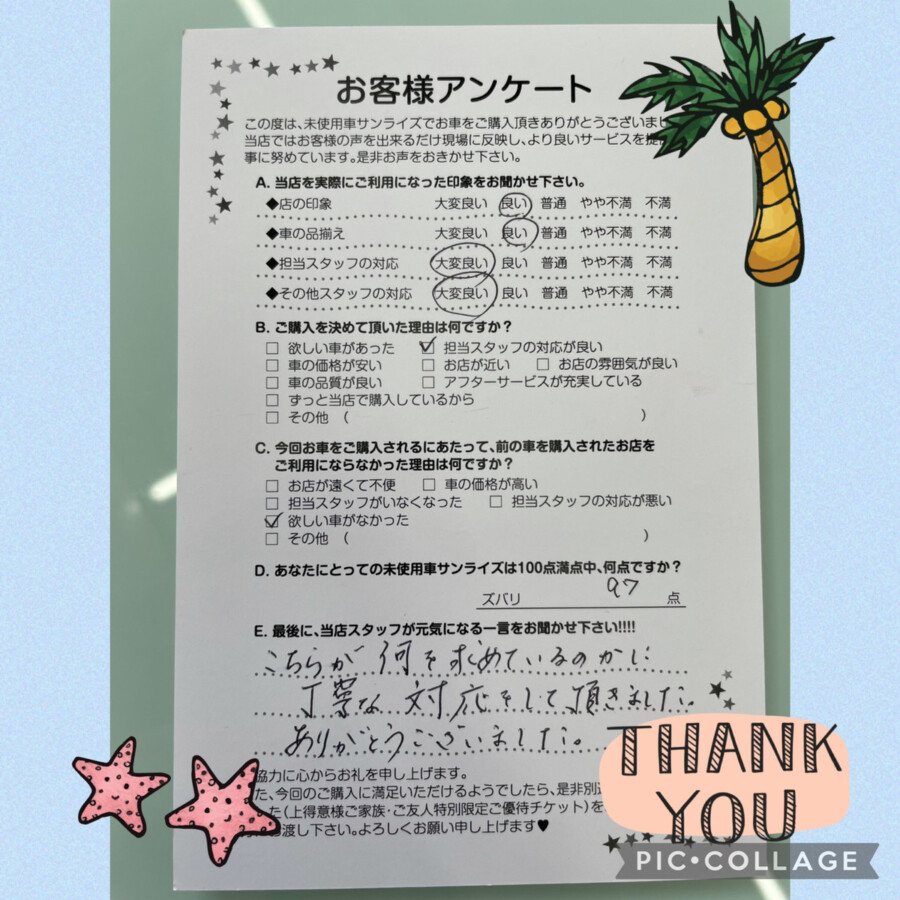 お客様アンケート
この度は、未使用車サンライズでお車をご購入頂きありがとうございまし
当店ではお客様の声を出来るだけ現場に反映し、より良いサービスを提
事に努めています。是非お声をおきかせ下さい。
A. 当店を実際にご利用になった印象をお聞かせ下さい。
◆店の印象 大変良い 良い 普通 やや不満 不満
◆車の品揃え 大変良い 良い 普通 やや不満 不満
◆担当スタッフの対応 大変良い 良い 普通 やや不満 不満
◆その他スタッフの対応 大変良い 良い 普通 やや不満 不満
B. ご購入を決めて頂いた理由は何ですか？
□ 欲しい車があった ☑ 担当スタッフの対応が良い
□ 車の価格が安い □ お店が近い □ お店の雰囲気が良い
□ 車の品質が良い □ アフターサービスが充実している
□ ずっと当店で購入しているから
□ その他 ( )
C. 今回お車をご購入されるにあたって、前の車を購入されたお店を
ご利用にならなかった理由は何ですか？
□ お店が遠くて不便 □ 車の価格が高い
□ 担当スタッフがいなくなった □ 担当スタッフの対応が悪い
☑ 欲しい車がなかった
□ その他 ( )
D. あなたにとっての未使用車サンライズは100点満点中、何点ですか？
ズバリ 97 点
E. 最後に、当店スタッフが元気になる一言をお聞かせ下さい!!!!
こちらが 何を求めているのかに
丁寧な 対応をして頂きました。
ありがとうございました。
協力に心からお礼を申し上げます。
た、今回のご購入に満足いただけるようでしたら、是非別
た(上得意様ご家族・ご友人特別限定ご優待チケット)を
お渡し下さい。よろしくお願い申し上げます♥
THANK
YOU
PIC•COLLAGE